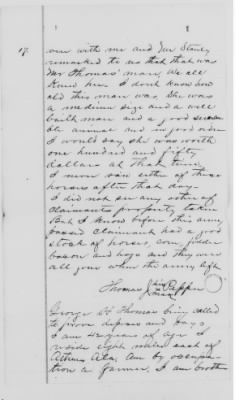 17.
over with me and Mr Stanly
remarked to us that that was
Mr Thomas' mare. We all
Knew her. I dont know how
old this mare was. She was
a medium size and a well
built mare and a good
able animal and in good order
I would say she was worth
one hundred and fifty
dollars at that time.
I never saw either of these
horses after that day.
I did not see any other of
claimants property taken
But I know before this army
passed claimant had a good
stock of horses, corn, fodder
bacon and hogs and they were
all gone when the army left
Thomas J his mark Pepper
George W Thomas being called
to prove deposes and says
I am 42 years of age I
reside eight miles east of
Athens Ala, am by occupa-
tion a farmer. I am brother